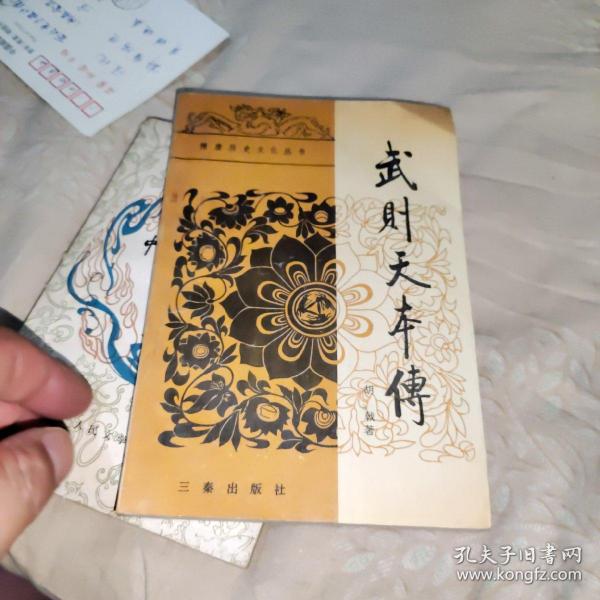 隋唐历史文化丛书
武則天本傳
胡戟著
三秦出版社
人民文
孔夫子旧书网
www.kongfz.com